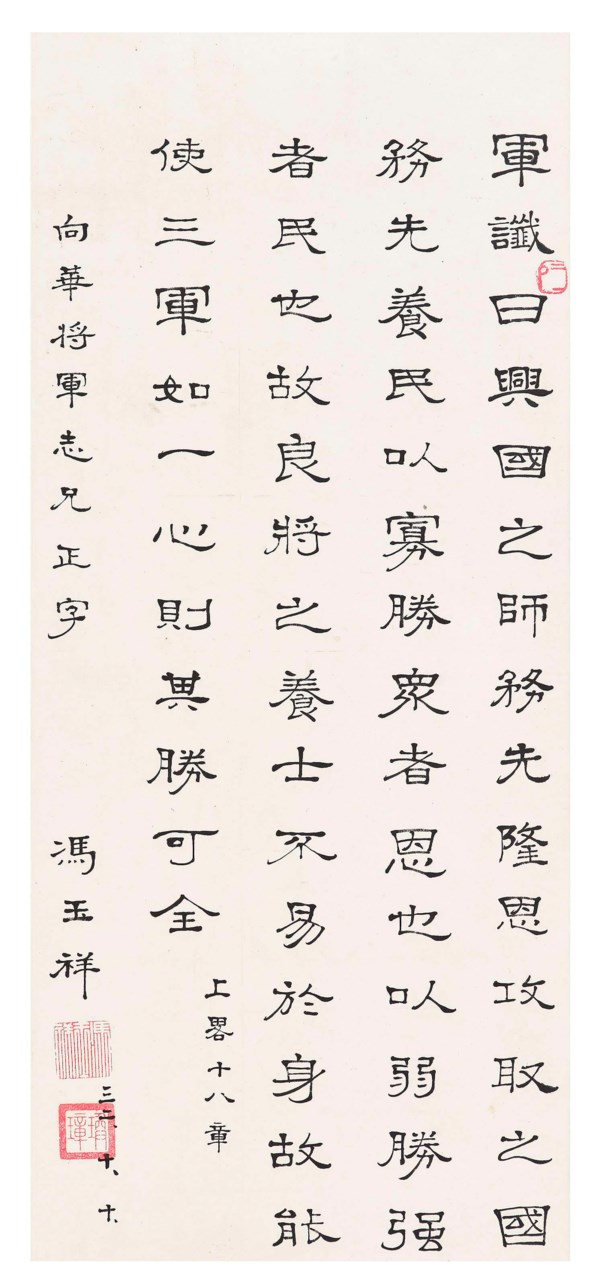 軍讖曰興國之師務先隆恩攻取之國
務先養民以寡勝衆者恩也以弱勝强
者民也故良將之養士不易於身故能
使三軍如一心則其勝可全
上畧十八章
向華将軍志兄正字
馮玉祥
三二、十、十、